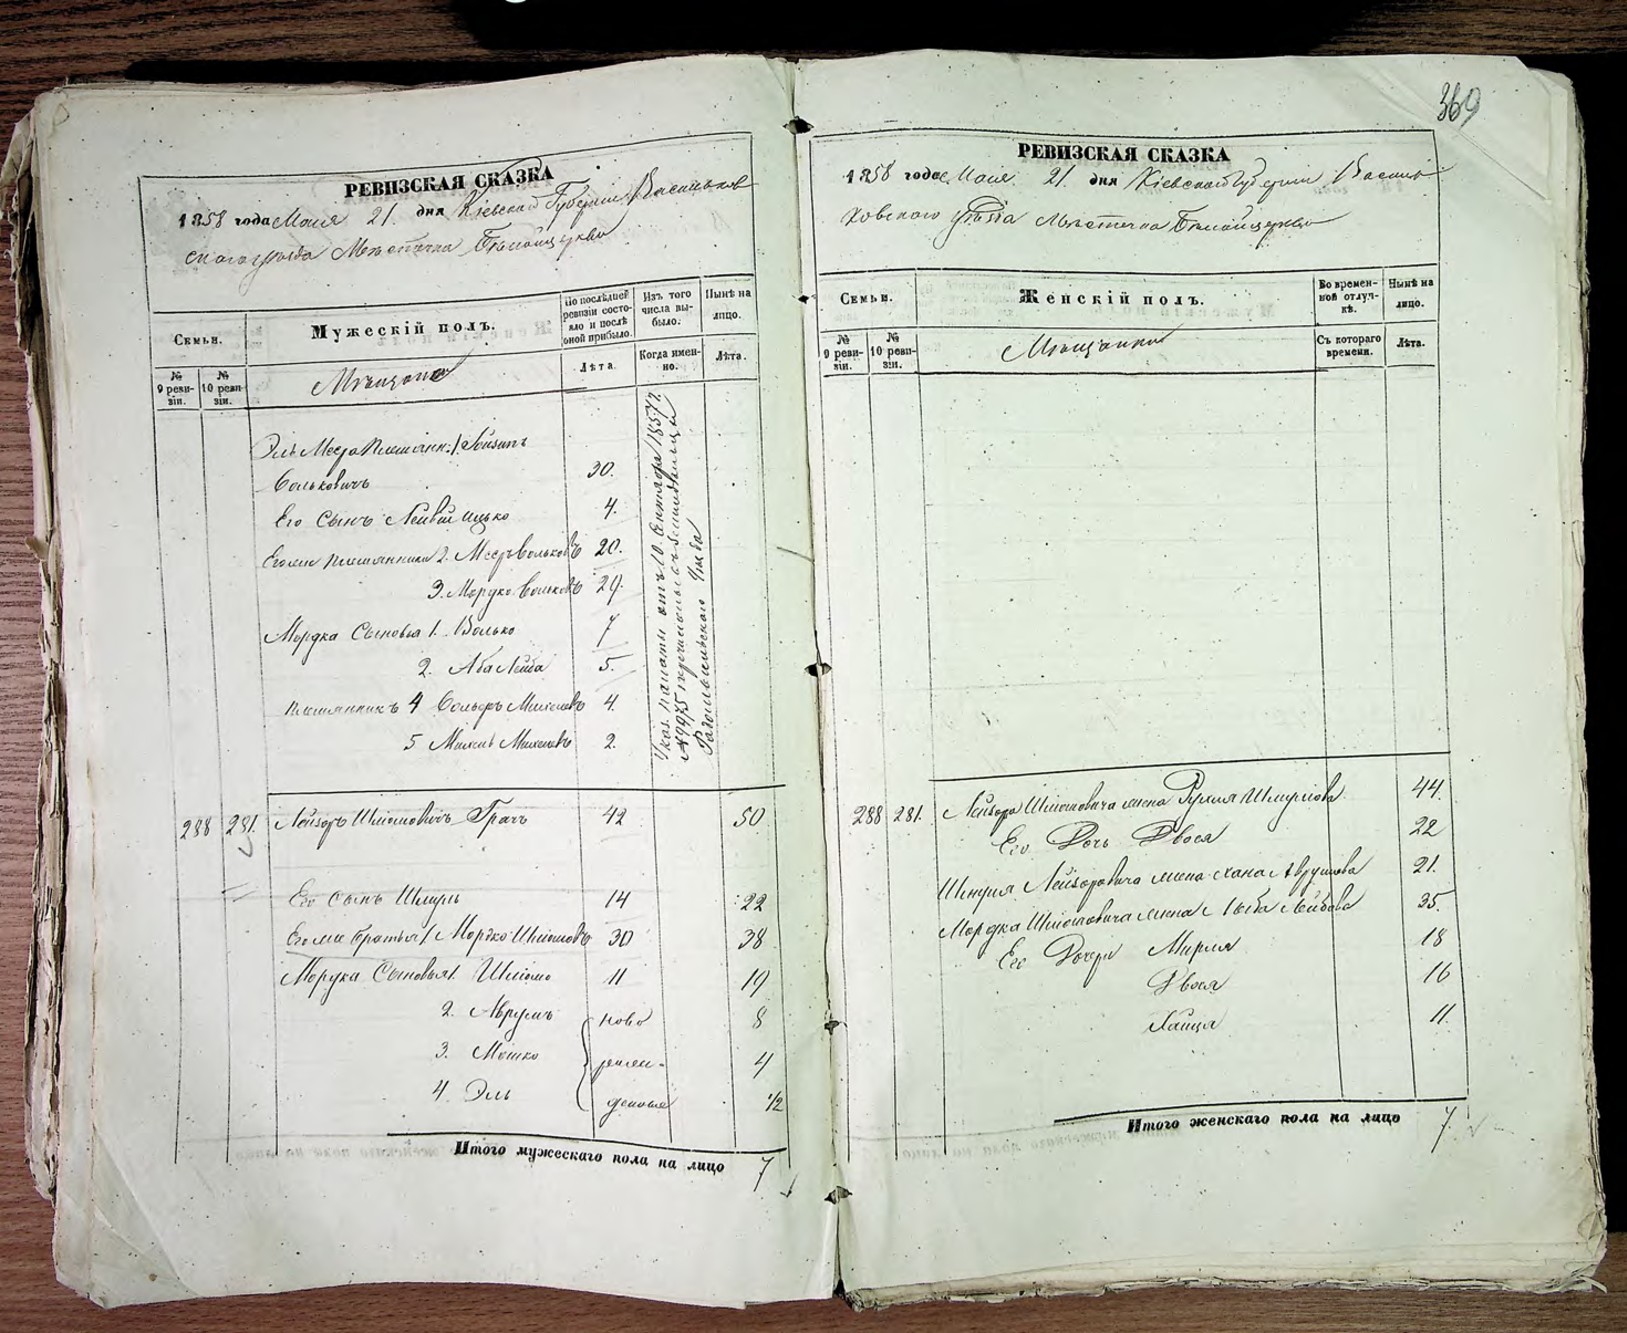 369
РЕВИЗСКАЯ СКАЗКА
1858 года Маія 21. дня Кіевской Губерніи Васильков
скаго уѣзда Мѣстечка Бѣлойцеркви
Семьи.
Мужескій полъ.
По послѣдней ревизіи состояло и послѣ оной прибыло.
Изъ того числа выбыло.
Нынѣ на лицо.
№ 9 ревизіи.
№ 10 ревизіи.
Мѣщане
Лѣта.
Когда именно.
Лѣта.
Эль Меера племян: 1. Лейзоръ
Вольковичъ 30.
Его Сынъ Ицько 4.
Егоже племянники 2. Мееръ Вольковъ 20.
3. Мордко Вольковъ 29.
Мордка Сыновья 1. Волько 7
2. Аба Лейба 5.
племянникъ 4 4.
5 2.
Указ. палаты отъ 10. Сентября 1857 г.
№ 9975 перечислены съ
уѣзда
288 281. Лейзоръ Шліомовичъ Грачъ 42 50
Его сынъ Шмуль 14 22
Егоже братья 1 Мордко Шліомовъ 30 38
Мордка Сыновья 1. Шліомо 11 19
2. Аврумъ ново 8
3. Мошко рож- 4
4. Эль денные 1/2
Итого мужескаго пола на лицо 7
РЕВИЗСКАЯ СКАЗКА
1858 года Маія 21. дня Кіевской Губерніи Василь
ковскаго уѣзда Мѣстечка Бѣлойцеркви
Семьи.
Женскій полъ.
Во временной отлучкѣ.
Нынѣ на лицо.
№ 9 ревизіи.
№ 10 ревизіи.
Мѣщанки
Съ котораго времени.
Лѣта.
288 281. Лейзора Шліомовича жена Рухля Шмулева 44.
Его Дочь Двося 22
Шмуля Лейзоровича жена Хана Аврумова 21.
Мордка Шліомовича жена Лейбова 35.
Его Дочери Мирля 18
Двося 16
Хайця 11.
Итого женскаго пола на лицо 7.